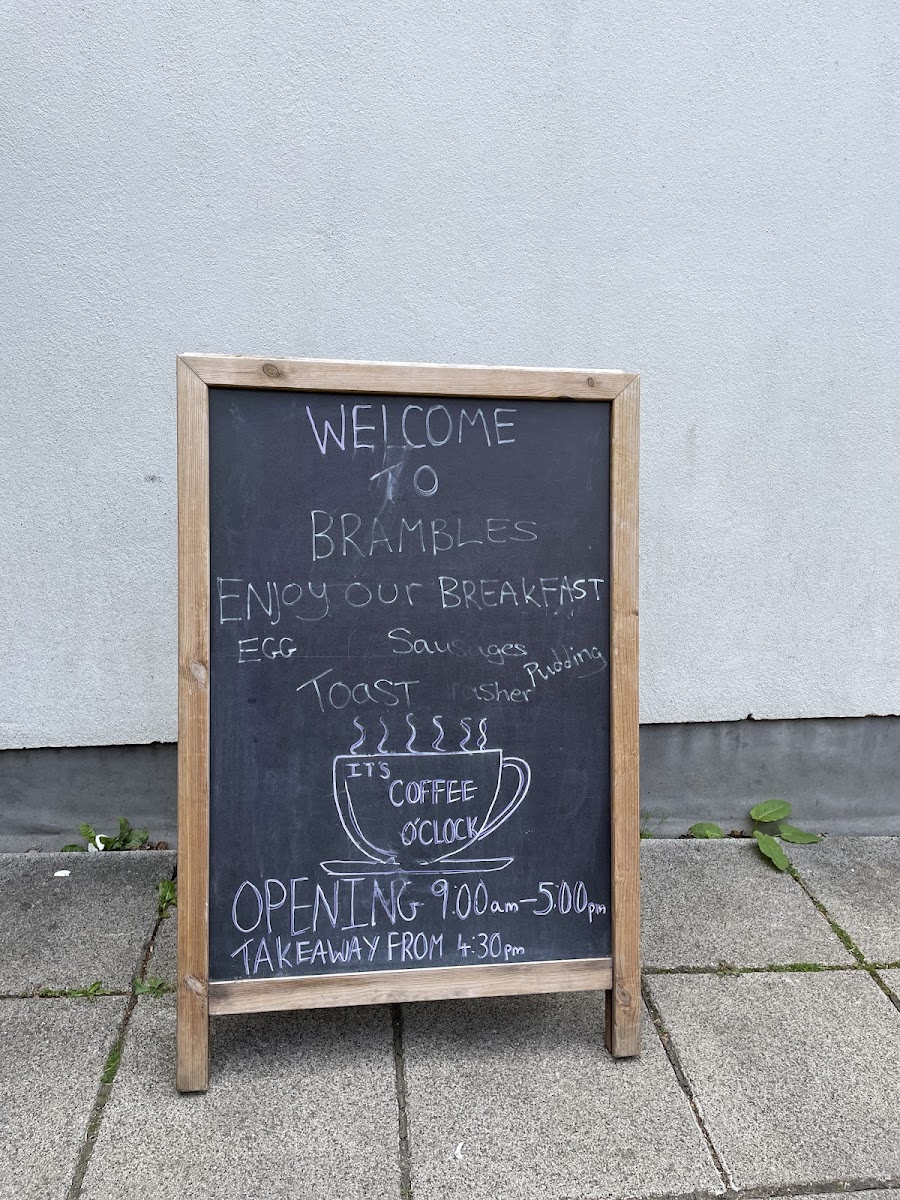 WELCOME
TO
BRAMBLES
ENJOY OUR BREAKFAST
EGG Sausages Pudding
TOAST rasher
IT'S
COFFEE
O'CLOCK
OPENING 9:00am-5:00pm
TAKEAWAY FROM 4:30pm